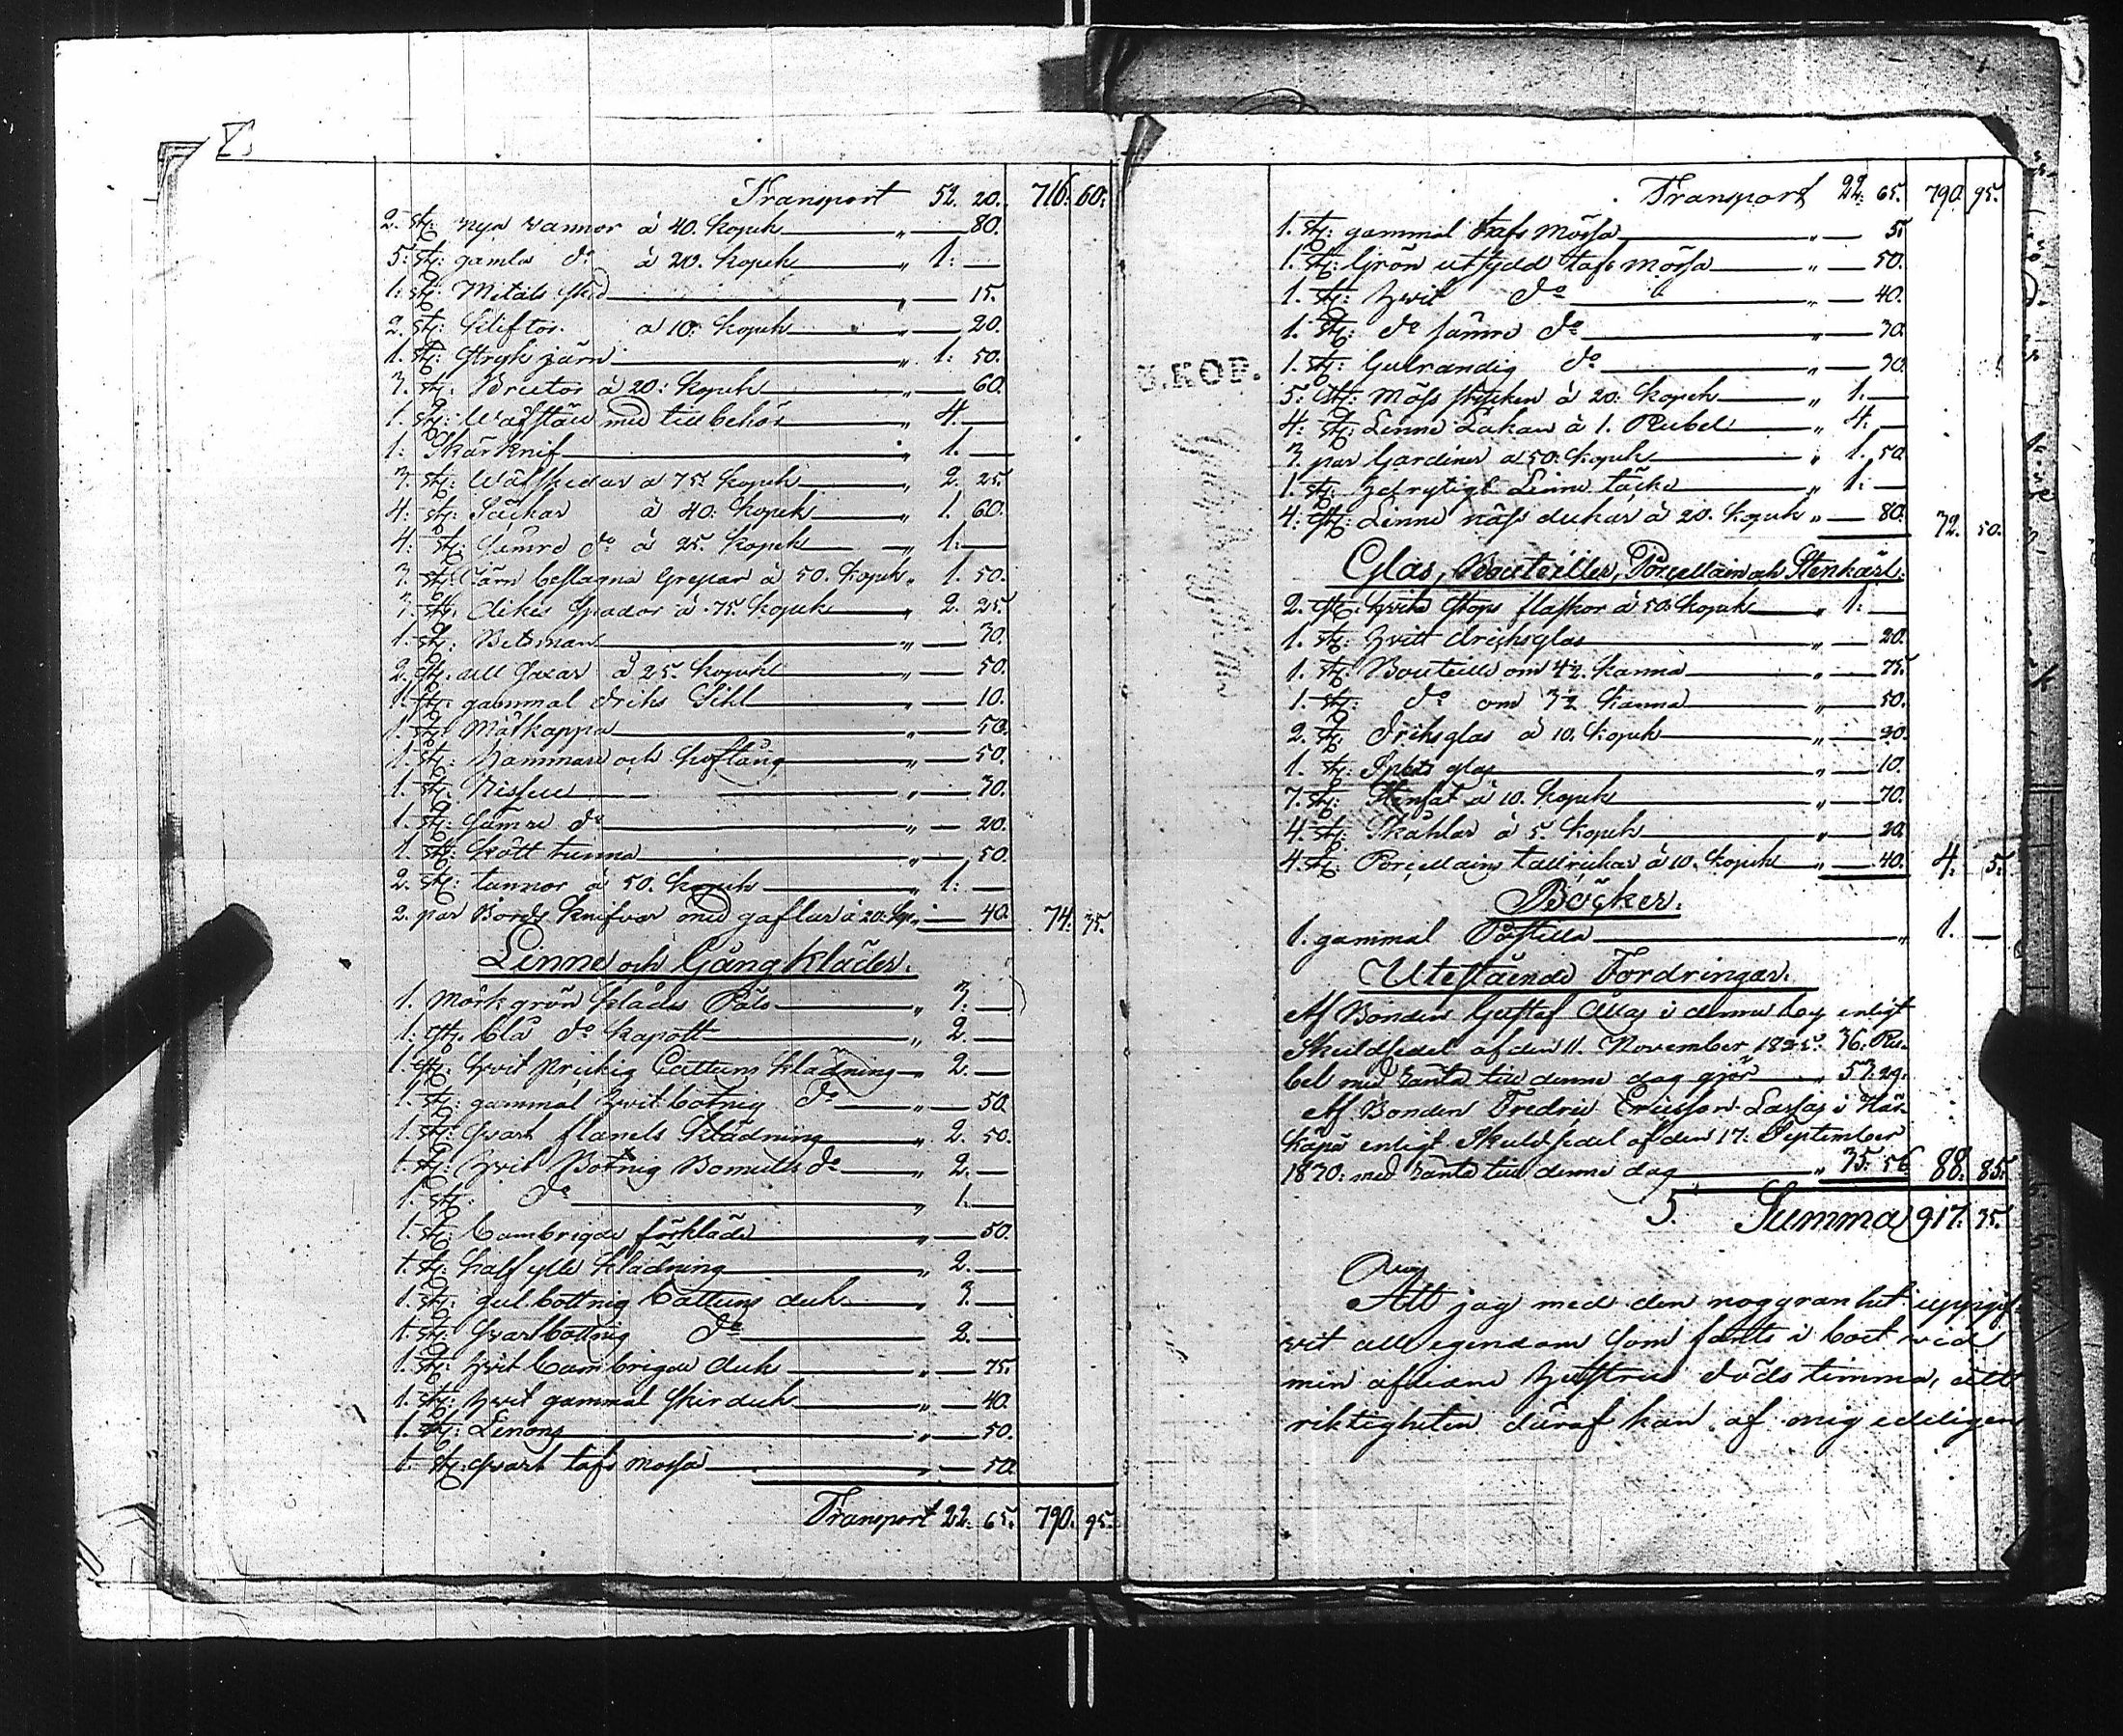 Transport 52. 20. 716. 60.
2. st: nya vannor à 40. kopek " — 80.
5. st: gamla do à 20. kopek " 1. —
1. st: Metals sked " — 15.
2. st: à 10. kopek " — 20.
1. st: Stryk järn " 1. 50.
3. st: à 20. kopek " — 60.
1. st: Wäfställ med till behör " 4. —
1. Skärknif " 1. —
3. st: Wäfskedar à 75. kopek " 2. 25.
4. st: Säckar à 40. kopek " 1. 60.
4. st: sämre do à 25. kopek " 1. —
3. st: Järn beslagna Grepar à 50. kopek " 1. 50.
3. st: dikes Spador à 75. kopek " 2. 25.
1. st: Betsman " — 30.
2. st: ull Saxar à 25. kopek " — 50.
1. st: gammal driks " — 10.
1. st: Måtkappa " — 50.
1. st: Hammare och hoftång " — 50.
1. st: " — 30.
1. st: sämre do " — 20.
1. st: kött tunna " — 50.
2. st: tunnor à 50. kopek " 1. —
2. par Bords knifvar med gaflar à 20. kop. " — 40. 74. 35.
Linne och Gångkläder.
1. mörk grön Klädes Päls " 3. —
1. st: blå do kapott " 2. —
1. st: hvit prickig Cattuns klädning " 2. —
1. st: gammal hvitbotnig do " — 50.
1. st: svart flanels klädning " 2. 50.
1. st: hvit Botnig Bomulls do " 2. —
1. st: do " 1. —
1. st: Cambrigde förkläde " — 50.
1. st: half ylle klädning " 2. —
1. st: gul bottnig Cattuns duk " 3. —
1. st: svartbottnig do 2. —
1. st: hvit Cambrigde duk " — 75.
1. st: hvit gammal skir duk " — 40.
1. st: Linong " — 50.
1. st: svart tafs mössa " — 50.
Transport 22. 65. 790. 95.
Transport 22. 65. 790. 95.
1. st: gammal tafs mössa " — 5.
1. st: Grön utsydd tafs mössa " — 50.
1. st: hvit do " — 40.
1. st: do sämre do " — 30.
1. st: Gulrandig do " — 30.
5. st: Möss stycken à 20. kopek " 1. —
4. st: Linne Lakan à 1. Rubel " 4. —
3. par Gardiner à 50. kopek " 1. 50.
1. st: Linne täcke " 1. —
4. st: Linne näss dukar à 20. kopek " — 80. 32. 50.
Glas, Bouteiller, Porcellain och Stenkärl.
2. st: hvita Stops flaskor à 50. kopek " 1. —
1. st: hvitt dricksglas " — 20.
1. st: Bouteille om 4½ kanna " — 75.
1. st: do om 3½ kanna " — 50.
2. st: driksglas à 10. kopek " — 20.
1. st: Spets glas " — 10.
7. st: Stenfat à 10. kopek " — 70.
4. st: Skåhlar à 5. kopek " — 20.
4. st: Porcellains tallrickar à 10. kopek " — 40. 4. 5.
Böcker.
1. gammal Postilla " 1. —
Utestående Fordringar.
Af Bonden Gustaf Allas i denne by enligt
Skuldsedel af den 11. November 1825. 36. Ru-
bel med ränta till denne dag gjör " 53. 29.
Af Bonden Fredric Ericsson Lassas i Här-
käpä enligt Skuldsedel af den 17. September
1830. med ränta till denne dag " 35. 56. 88. 85.
S. Summa 917. 35.
U. KOP.
Att jag med den noggranhet uppgif-
vit all egendom som fants i boet vid
min aflidne Hustrus dödstimma, att
riktigheten däraf kan af mig edeligen